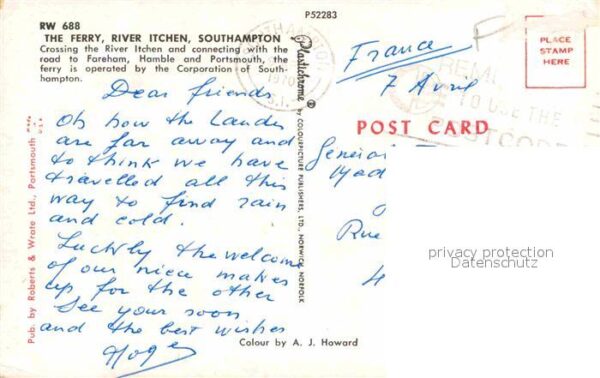 P52283
RW 688
THE FERRY, RIVER ITCHEN, SOUTHAMPTON
Crossing the River Itchen and connecting with the
road to Fareham, Hamble and Portsmouth, the
ferry is operated by the Corporation of South-
hampton.
Dear friends
Oh how the Landes
are far away and
to think we have
travelled all this
way to find rain
and cold.
Luckily the welcome
of our niece makes
up for the other
See your soon
and the best wishes
Pub. by Roberts & Wrate Ltd., Portsmouth
Plastichrome ®
by COLOURPICTURE PUBLISHERS, LTD., NORWICH, NORFOLK
Colour by A. J. Howard
PLACE
STAMP
HERE
France
7 Avril
REMEMBER
TO USE THE
POSTCODE
POST CARD
Rue
privacy protection
Datenschutz